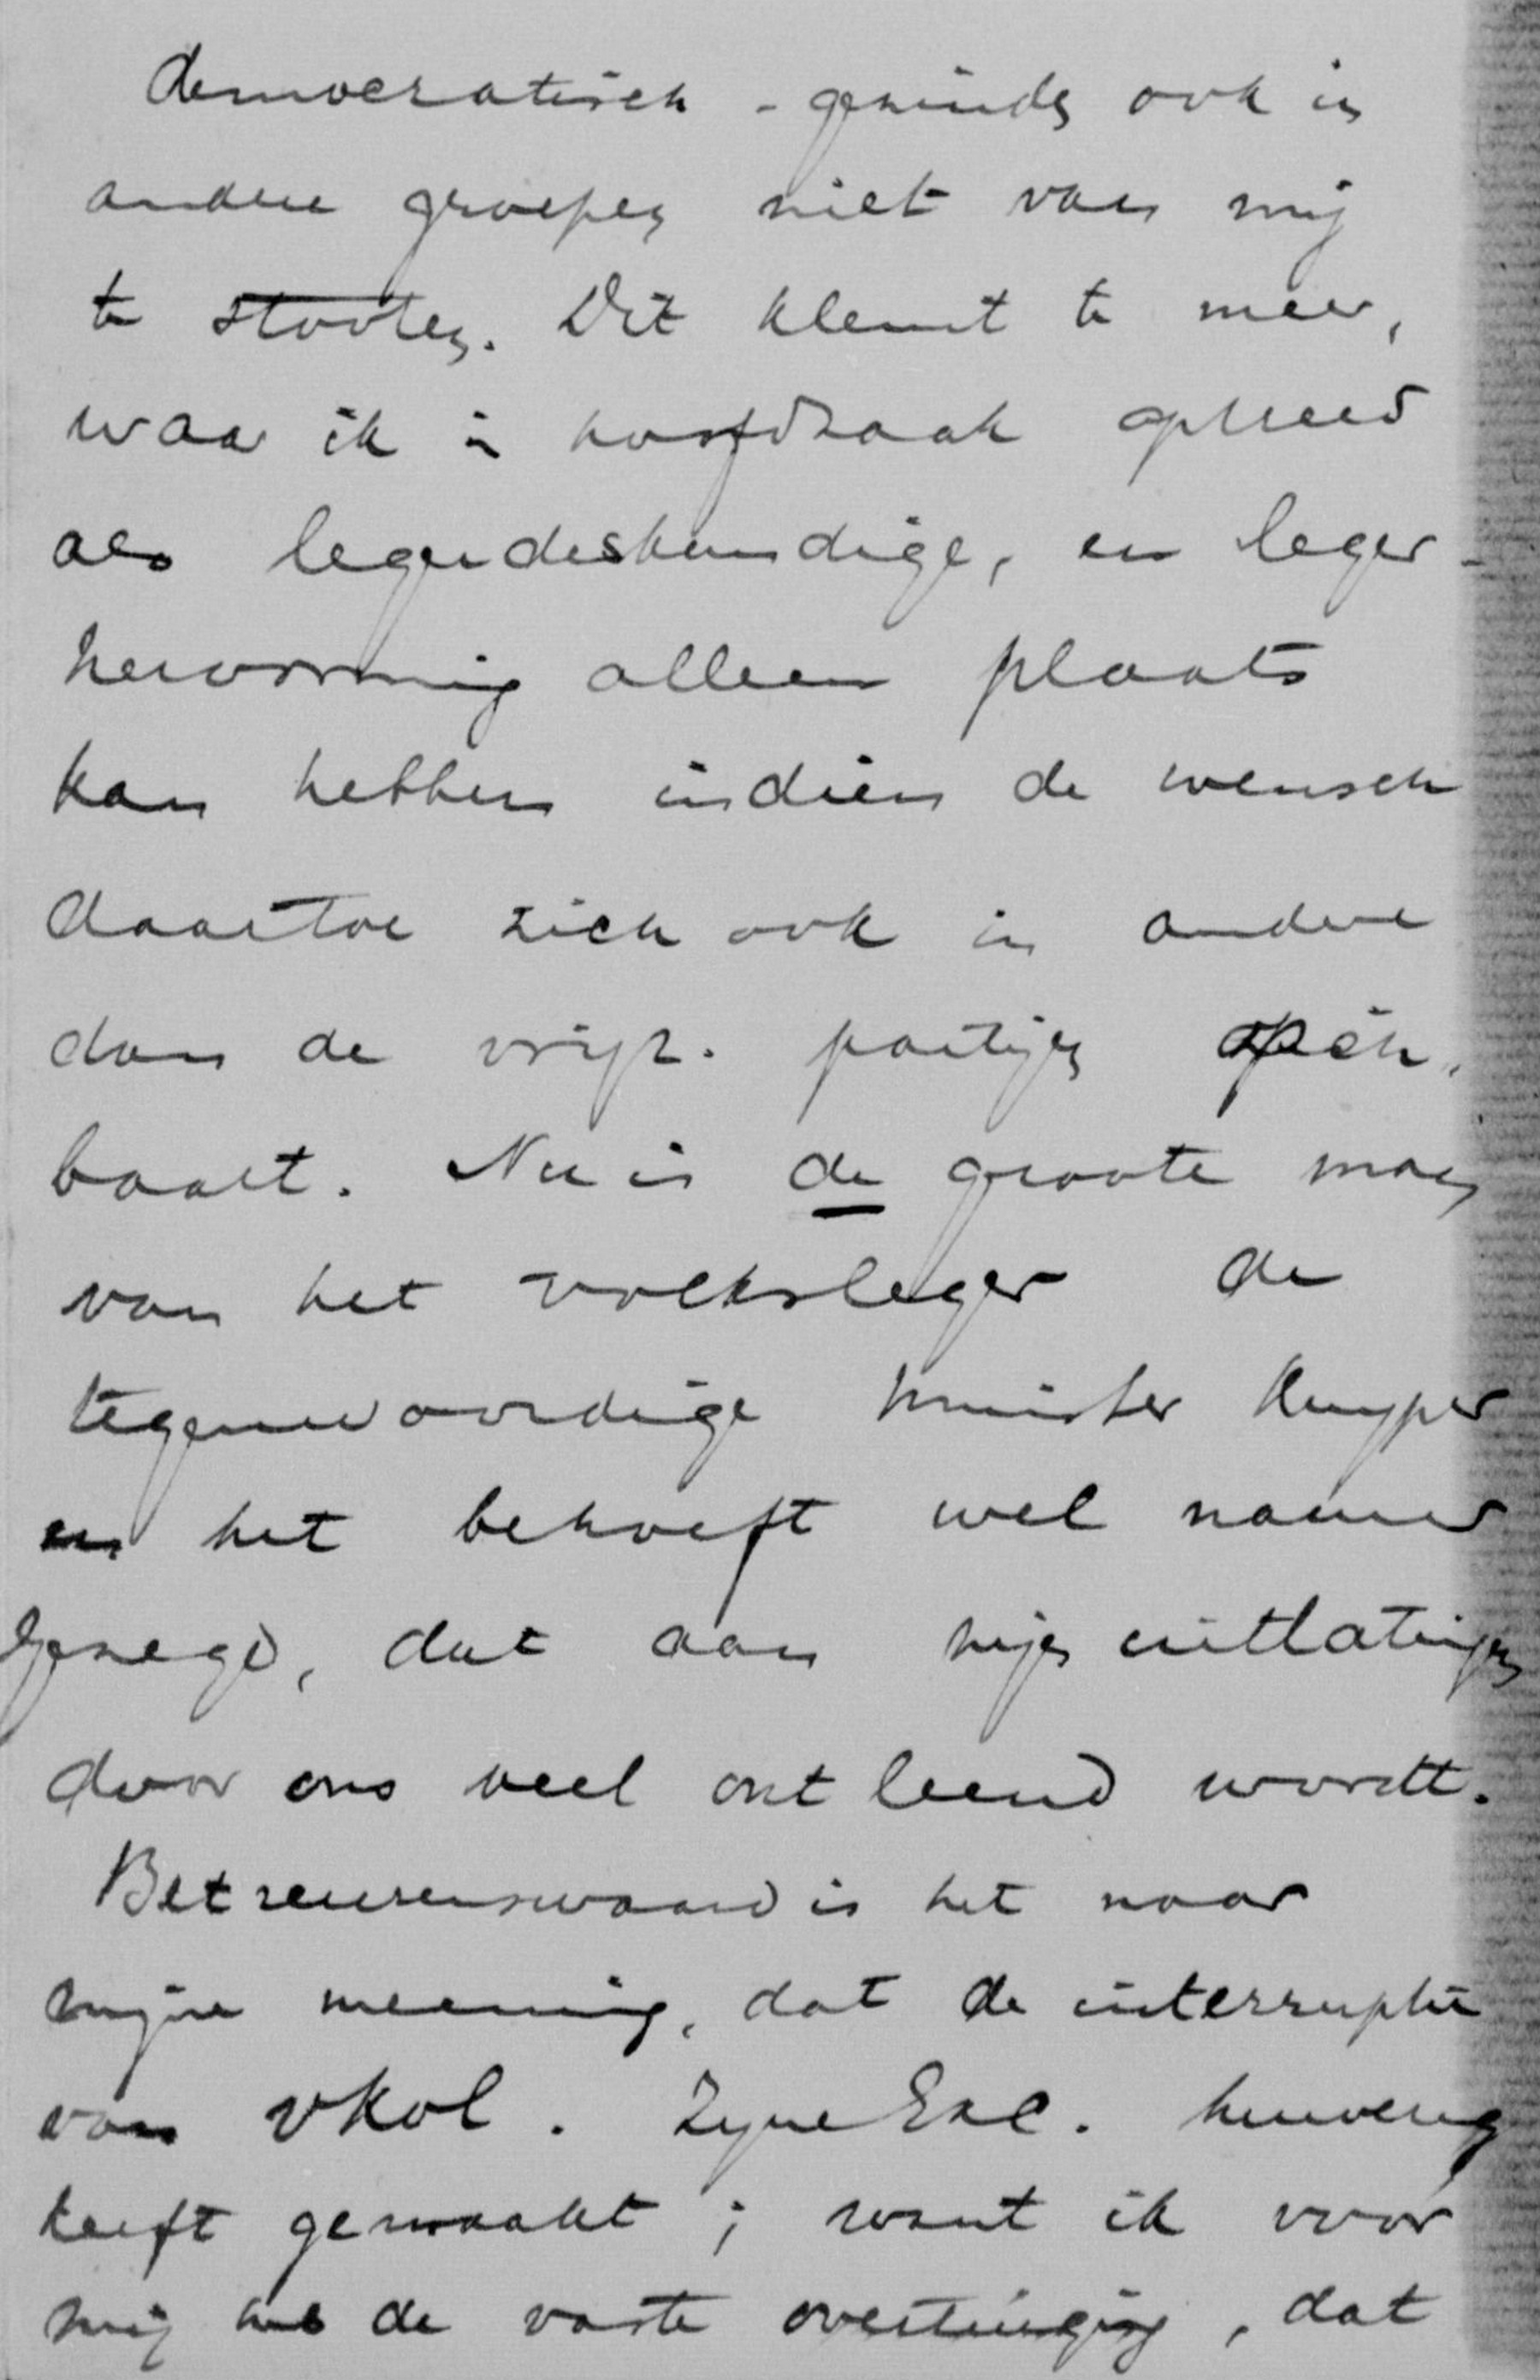 democratisch-gezinds ook in
andere groepen niet van mij
te stooten. Dit klemt te meer,
waar ik in hoofdzaak optreed
als legerdeskundige, en leger-
hervorming alleen plaats
kan hebben indien de wensch
daartoe zich ook in andere
dan de vrijz. partijen open-
baart. Nu is de groote man
van het volksleger de
tegenwoordige minister Kuyper
en het behoeft wel nauw
gezegd, dat aan zijn uitlatingen
door ons veel ontleend wordt.
Betreurenswaard is het naar
mijne meening, dat de interruptie
van VKol. Zijne Exc. kwverig
heeft gemaakt; want ik voor
mij heb de vaste overtuiging, dat